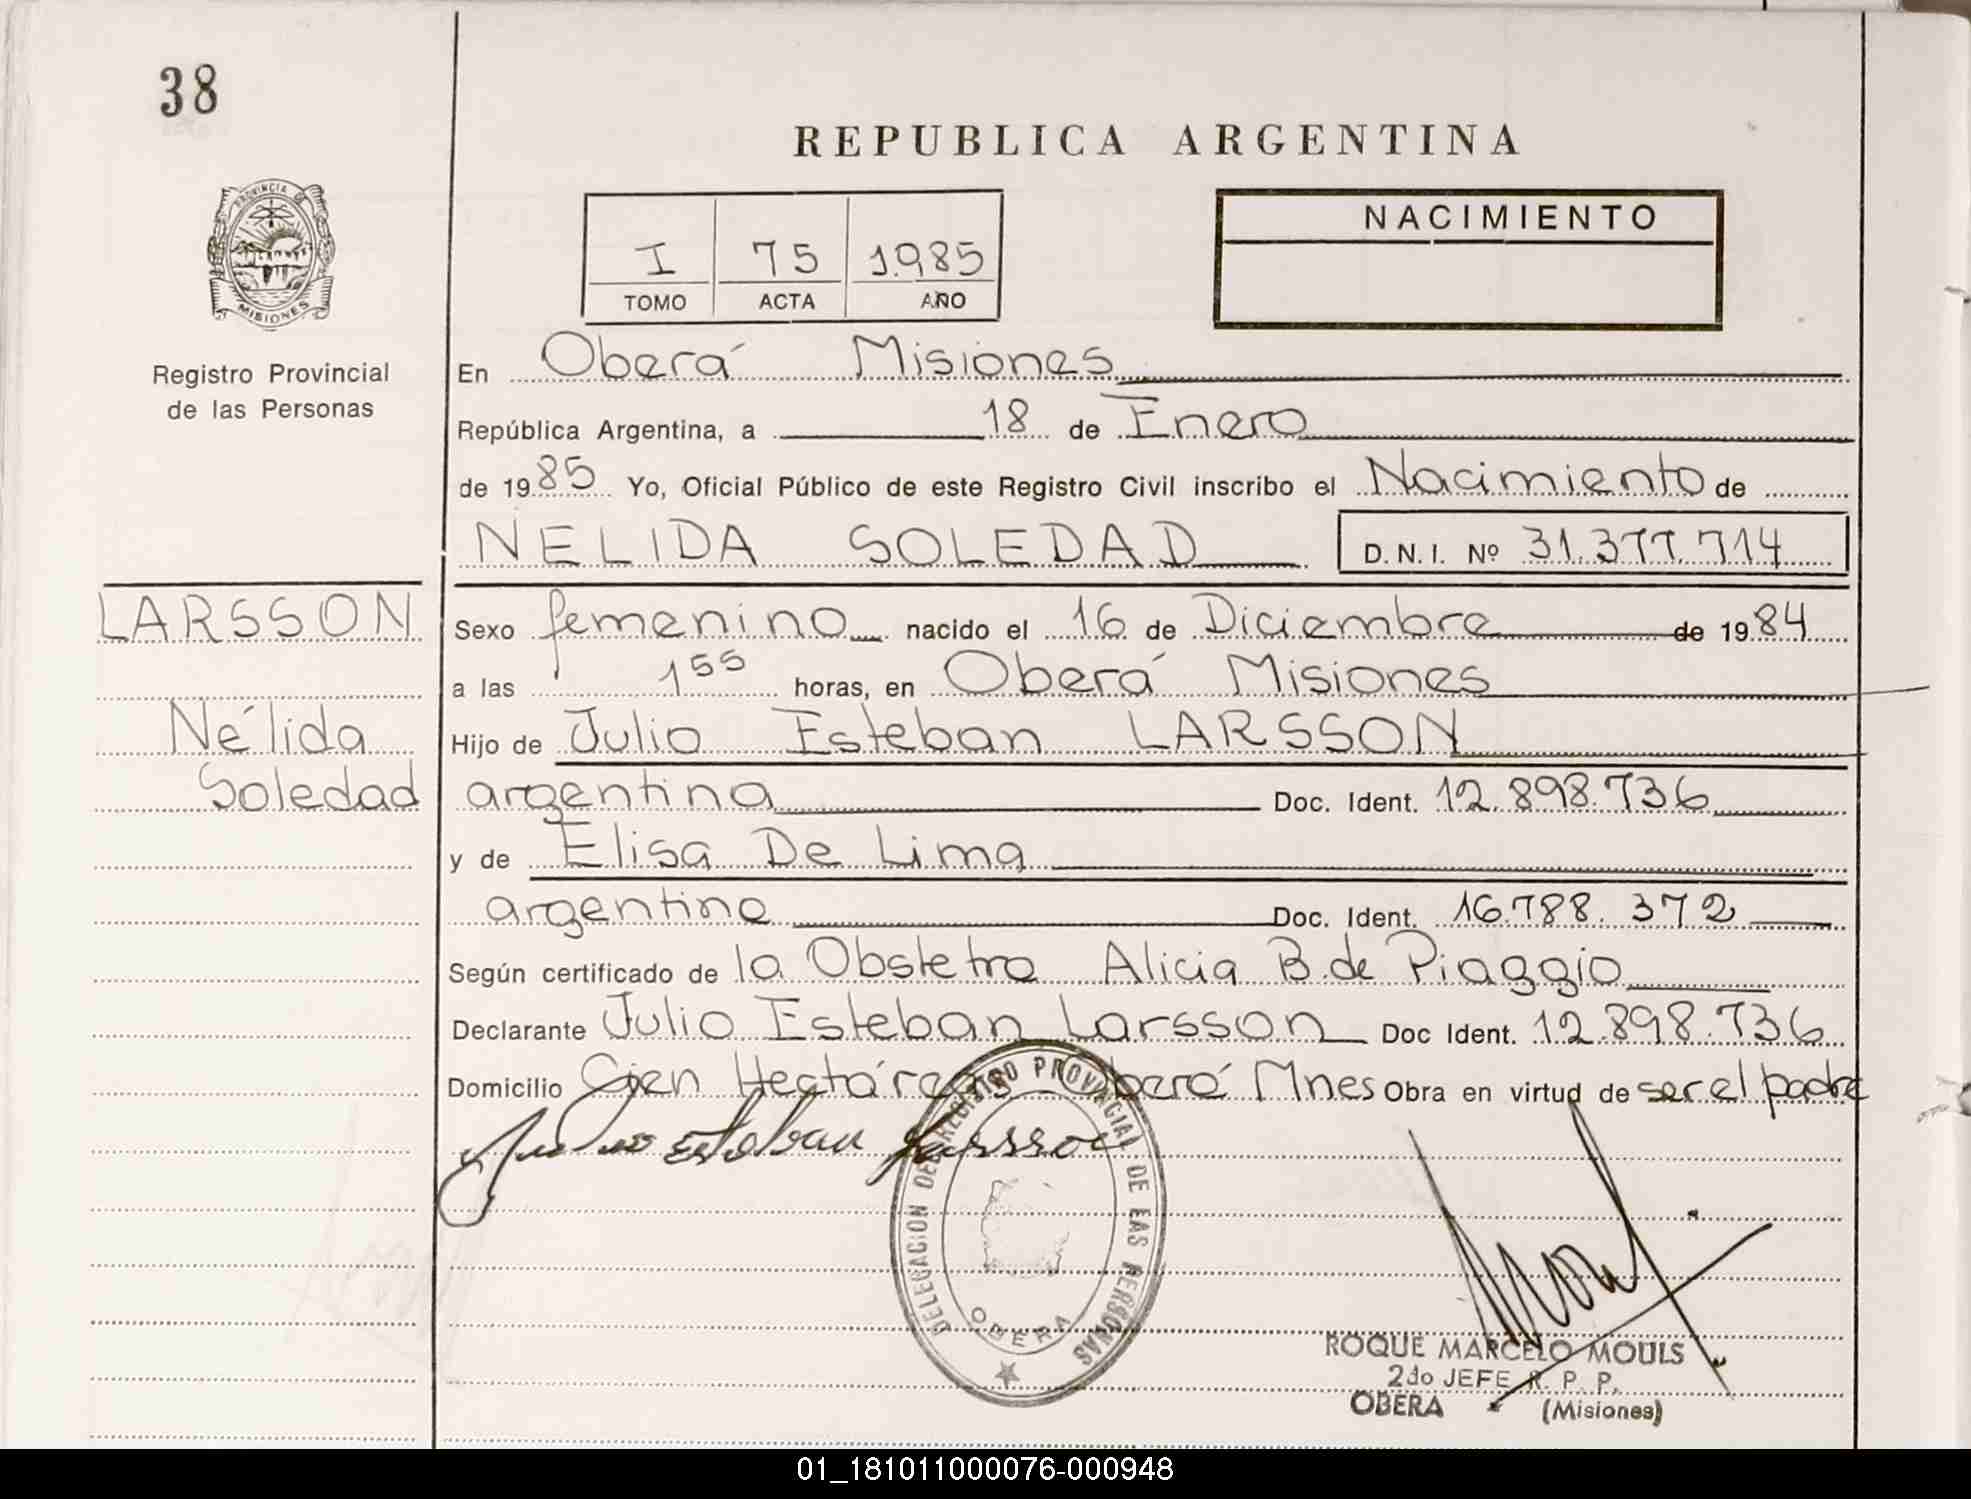 38
REPUBLICA ARGENTINA
PROVINCIA DE
MISIONES
Registro Provincial
de las Personas
I 75 1.985
TOMO ACTA AÑO
NACIMIENTO
En Oberá Misiones
República Argentina, a 18 de Enero
de 1985 Yo, Oficial Público de este Registro Civil inscribo el Nacimiento de
NELIDA SOLEDAD D.N.I. Nº 31.377.714
LARSSON
Nélida
Soledad
Sexo femenino nacido el 16 de Diciembre de 1984
a las 1 55 horas, en Oberá Misiones
Hijo de Julio Esteban LARSSON
argentina Doc. Ident. 12.898.736
y de Elisa De Lima
argentina Doc. Ident. 16.788.372
Según certificado de la Obstetra Alicia B. de Piaggio
Declarante Julio Esteban Larsson Doc Ident. 12.898.736
Domicilio Cien Hectáreas - Oberá Mnes Obra en virtud de ser el padre
Julio Esteban Larsson
DELEGACION DEL REGISTRO PROVINCIAL DE LAS PERSONAS
OBERA
ROQUE MARCELO MOULS
2do JEFE R. P. P.
OBERA (Misiones)
01_181011000076-000948